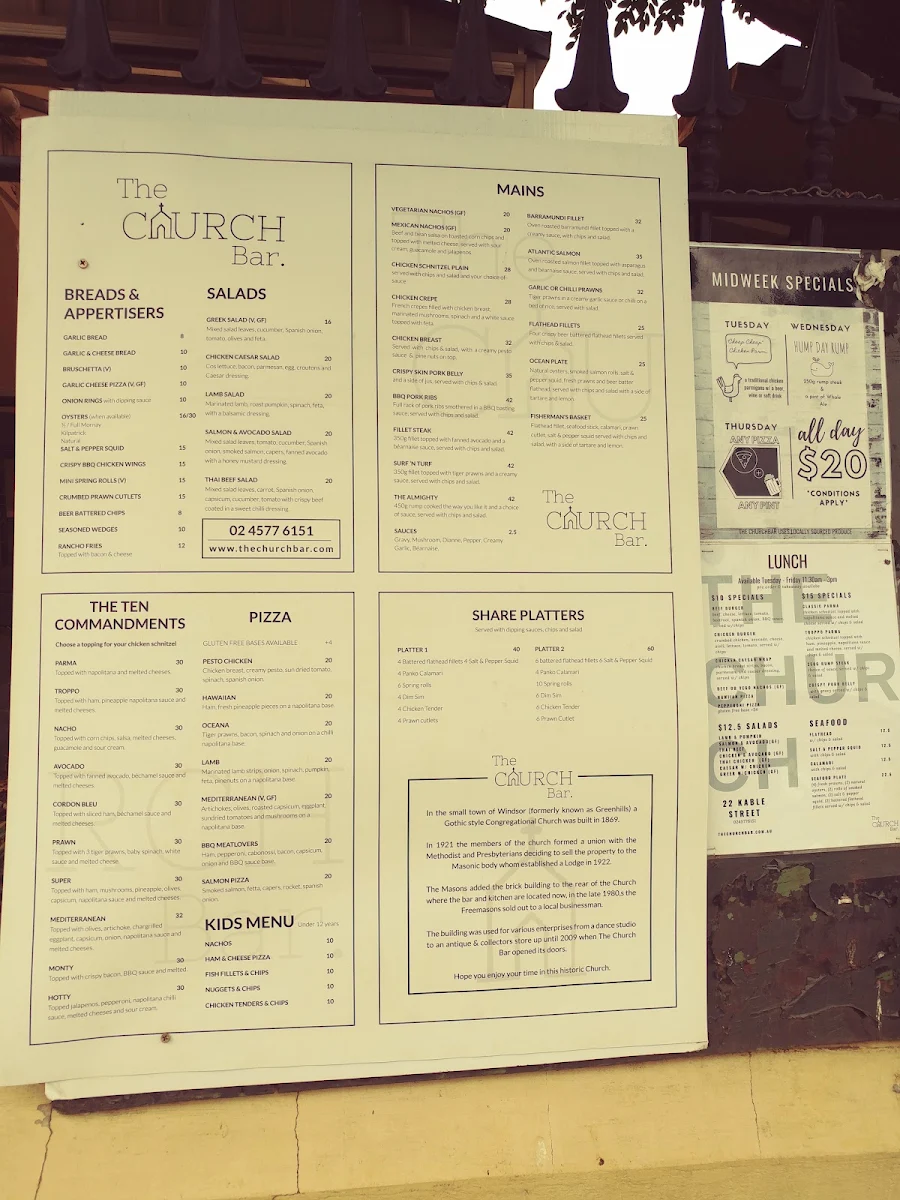 The
CHURCH
Bar.
BREADS &
APPERTISERS
GARLIC BREAD 8
GARLIC & CHEESE BREAD 10
BRUSCHETTA (V) 10
GARLIC CHEESE PIZZA (V, GF) 10
ONION RINGS with dipping sauce 10
OYSTERS (when available) 16/30
½ / Full
Kilpatrick
Natural
SALT & PEPPER SQUID 15
CRISPY BBQ CHICKEN WINGS 15
MINI SPRING ROLLS (V) 15
CRUMBED PRAWN CUTLETS 15
BEER BATTERED CHIPS 8
SEASONED WEDGES 10
RANCHO FRIES 12
Topped with bacon & cheese
SALADS
GREEK SALAD (V, GF) 16
Mixed salad leaves, cucumber, Spanish onion,
tomato, olives and feta.
CHICKEN CAESAR SALAD 20
Cos lettuce, bacon, parmesan, egg, croutons and
Caesar dressing.
LAMB SALAD 20
Marinated lamb, roast pumpkin, spinach, feta,
with a balsamic dressing.
SALMON & AVOCADO SALAD 20
Mixed salad leaves, tomato, cucumber, Spanish
onion, smoked salmon, capers, fanned avocado
with a honey mustard dressing.
THAI BEEF SALAD 20
Mixed salad leaves, carrot, Spanish onion,
capsicum, cucumber, tomato with crispy beef
coated in a sweet chilli dressing.
02 4577 6151
www.thechurchbar.com
MAINS
VEGETARIAN NACHOS (GF) 20
MEXICAN NACHOS (GF) 20
Beef and Bean salsa on toasted corn chips and
topped with melted cheese served with sour
cream, guacamole and jalapenos.
CHICKEN SCHNITZEL PLAIN 28
served with chips and salad and your choice of
sauce.
CHICKEN CREPE 28
French crepes filled with chicken breast,
marinated mushrooms, spinach and a white sauce
topped with feta.
CHICKEN BREAST 32
Served with chips & salad, with a creamy pesto
sauce & pine nuts on top.
CRISPY SKIN PORK BELLY 35
and a side of jus, served with chips & salad.
BBQ PORK RIBS 42
Full rack of pork ribs smothered in a BBQ basting
sauce, served with chips and salad.
FILLET STEAK 42
350g fillet topped with fanned avocado and a
béarnaise sauce, served with chips and salad.
SURF 'N TURF 42
350g fillet topped with tiger prawns and a creamy
sauce, served with chips and salad.
THE ALMIGHTY 42
450g rump cooked the way you like it and a choice
of sauce, served with chips and salad.
SAUCES 2.5
Gravy, Mushroom, Dianne, Pepper, Creamy
Garlic, Bearnaise.
BARRAMUNDI FILLET 32
Oven roasted barramundi fillet topped with a
creamy sauce, with chips and salad.
ATLANTIC SALMON 35
Oven roasted salmon fillet topped with asparagus
and bearnaise sauce, served with chips and salad.
GARLIC OR CHILLI PRAWNS 32
Tiger prawns in a creamy garlic sauce or chilli on a
bed of rice, served with chips and salad.
FLATHEAD FILLETS 25
Four crispy beer battered flathead fillets served
with chips & salad.
OCEAN PLATE 25
Natural oysters, smoked salmon rolls, salt &
pepper squid, fresh prawns and beer batter
flathead, served with chips and salad with a side of
tartare and lemon.
FISHERMAN'S BASKET 25
Flathead fillet, seafood stick, calamari, prawn
cutlet, salt & pepper squid served with chips and
salad, with a side of tartare and lemon.
The
CHURCH
Bar.
THE TEN
COMMANDMENTS
Choose a topping for your chicken schnitzel
PARMA 30
Topped with napolitana and melted cheeses.
TROPPO 30
Topped with ham, pineapple napolitana sauce and
melted cheeses.
NACHO 30
Topped with corn chips, salsa, melted cheeses,
guacamole and sour cream.
AVOCADO 30
Topped with fanned avocado, béchamel sauce and
melted cheeses.
CORDON BLEU 30
Topped with sliced ham, béchamel sauce and
melted cheeses.
PRAWN 30
Topped with 3 tiger prawns, baby spinach, white
sauce and melted cheese.
SUPER 30
Topped with ham, mushrooms, pineapple, olives,
capsicum, napolitana sauce and melted cheeses.
MEDITERRANEAN 32
Topped with olives, artichoke, chargrilled
eggplant, capsicum, onion, napolitana sauce and
melted cheeses.
MONTY 30
Topped with crispy bacon, BBQ sauce and melted.
HOTTY 30
Topped jalapenos, pepperoni, napolitana chilli
sauce, melted cheeses and sour cream.
PIZZA
GLUTEN FREE BASES AVAILABLE +4
PESTO CHICKEN 20
Chicken breast, creamy pesto, sun dried tomato,
spinach, spanish onion.
HAWAIIAN 20
Ham, fresh pineapple pieces on a napolitana base.
OCEANA 20
Tiger prawns, bacon, spinach and onion on a chilli
napolitana base.
LAMB 20
Marinated lamb strips, onion, spinach, pumpkin,
feta, pinenuts on a napolitana base.
MEDITERRANEAN (V, GF) 20
Artichokes, olives, roasted capsicum, eggplant,
sundried tomatoes and mushrooms on a
napolitana base.
BBQ MEATLOVERS 20
Ham, pepperoni, cabonossi, bacon, capsicum,
onion and BBQ sauce base.
SALMON PIZZA 20
Smoked salmon, fetta, capers, rocket, spanish
onion.
KIDS MENU Under 12 years
NACHOS 10
HAM & CHEESE PIZZA 10
FISH FILLETS & CHIPS 10
NUGGETS & CHIPS 10
CHICKEN TENDERS & CHIPS 10
SHARE PLATTERS
Served with dipping sauces, chips and salad
PLATTER 1 40
4 Battered flathead fillets 4 Salt & Pepper Squid
4 Panko Calamari
6 Spring rolls
4 Dim Sim
4 Chicken Tender
4 Prawn cutlets
PLATTER 2 60
6 battered flathead fillets 6 Salt & Pepper Squid
6 Panko Calamari
10 Spring rolls
6 Dim Sim
6 Chicken Tender
6 Prawn Cutlet
The
CHURCH
Bar.
In the small town of Windsor (formerly known as Greenhills) a
Gothic style Congregational Church was built in 1869.
In 1921 the members of the church formed a union with the
Methodist and Presbyterians deciding to sell the property to the
Masonic body whom established a Lodge in 1922.
The Masons added the brick building to the rear of the Church
where the bar and kitchen are located now, in the late 1980.s the
Freemasons sold out to a local businessman.
The building was used for various enterprises from a dance studio
to an antique & collectors store up until 2009 when The Church
Bar opened its doors.
Hope you enjoy your time in this historic Church.
MIDWEEK SPECIALS
TUESDAY
Cheap Cheap
Chicken Parma
a traditional chicken
parmigana or a beer
wine or soft drink
WEDNESDAY
HUMP DAY RUMP
250g rump steak
&
a pint of Whale
Ale
THURSDAY
ANY PIZZA
ANY PINT
all day
$20
*CONDITIONS
APPLY*
THE CHURCHBAR USES LOCALLY SOURCED PRODUCE
LUNCH
Available Tuesday - Friday 11:30am - 3pm
THE
CHUR
CH
$10 SPECIALS
BEEF BURGER
CHICKEN BURGER
CHICKEN CAESAR WRAP
BEEF OR VEG NACHOS (GF)
HAWIIAN PIZZA
PEPPERONI PIZZA
$12.5 SALADS
LAMB & PUMPKIN
SALMON & AVOCADO(GF)
THAI BEEF
$15 SPECIALS
CLASSIC PARMA
TROPPO PARMA
200G RUMP STEAK
CRISPY PORK BELLY
SEAFOOD
FLATHEAD
w/ chips & salad
SALT & PEPPER SQUID
with chips & salad
CALAMARI
with chips & salad
SEAFOOD PLATE
22 KABLE
STREET
THECHURCHBAR.COM.AU